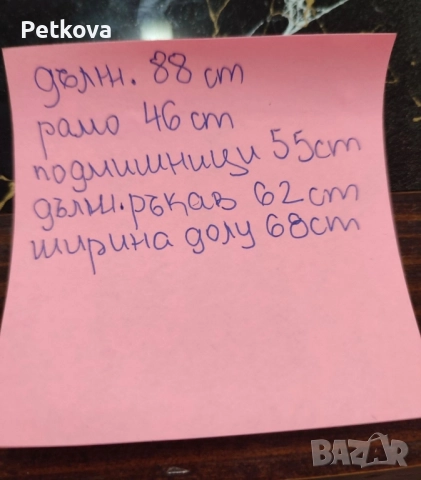 Petkova
дълж. 88 cm
рамо 46 cm
подмишници 55cm
дълж. ръкав 62 cm
ширина долу 68cm
BAZAR